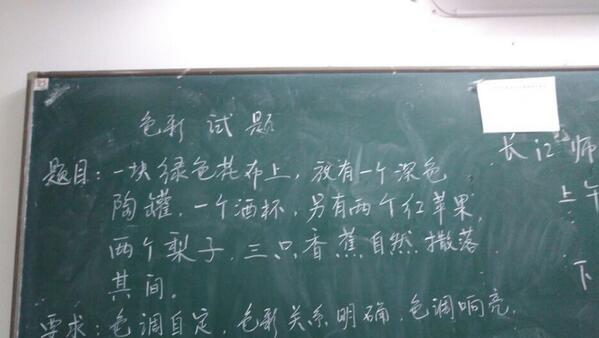 色彩试题
题目:一块绿色花布上,放有一个深色
陶罐,一个酒杯,另有两个红苹果,
两个梨子,三只香蕉自然撒落
其间。
要求:色调自定,色彩关系明确,色调响亮,
长江师
上午
下